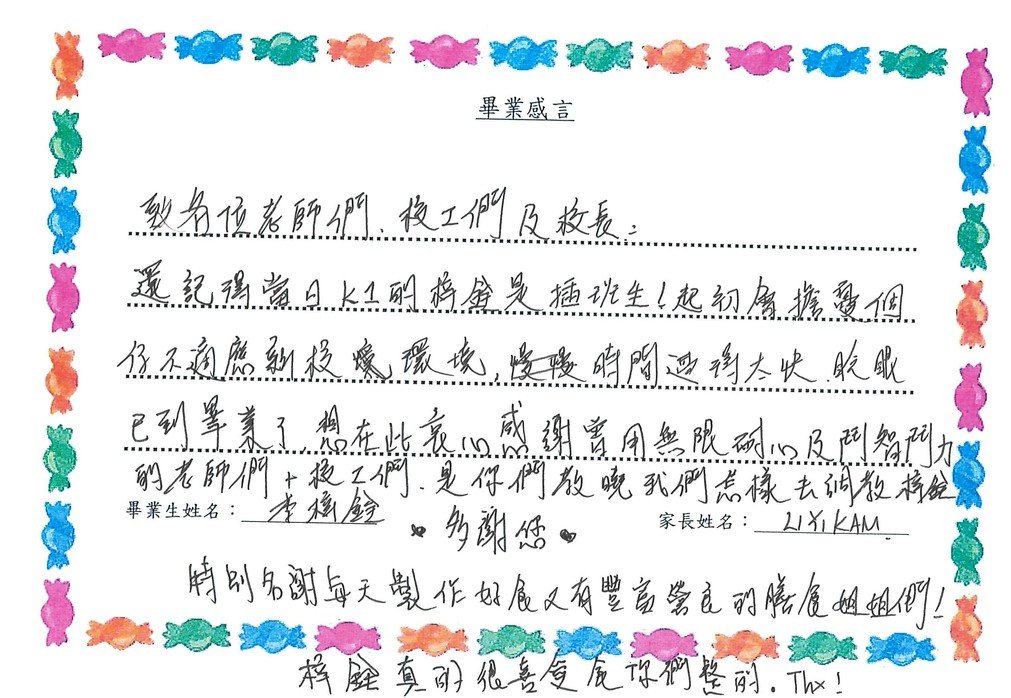 畢業感言
致各位老師們、校工們及校長：
還記得當日K1的梓銓是插班生！起初會擔憂個
仔不適應新校環境，時間過得太快，眨眼
已到畢業了，想在此衷心感謝曾用無限耐心及鬥智鬥力
的老師們＋校工們，是你們教曉我們怎樣去調教梓銓
畢業生姓名：李梓銓
多謝您
家長姓名：LI YI KAM
特別多謝每天製作好食又有豐富營良的膳食姐姐們！
梓銓真的很喜愛食你們整的。Thx！